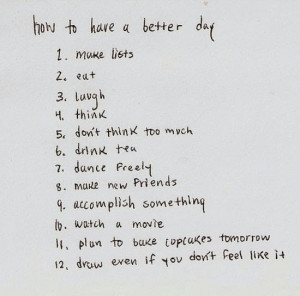 how to have a better day
1. make lists
2. eat
3. laugh
4. think
5. don't think too much
6. drink tea
7. dance freely
8. make new friends
9. accomplish something
10. watch a movie
11. plan to bake copcakes tomorrow
12. draw even if you don't feel like it